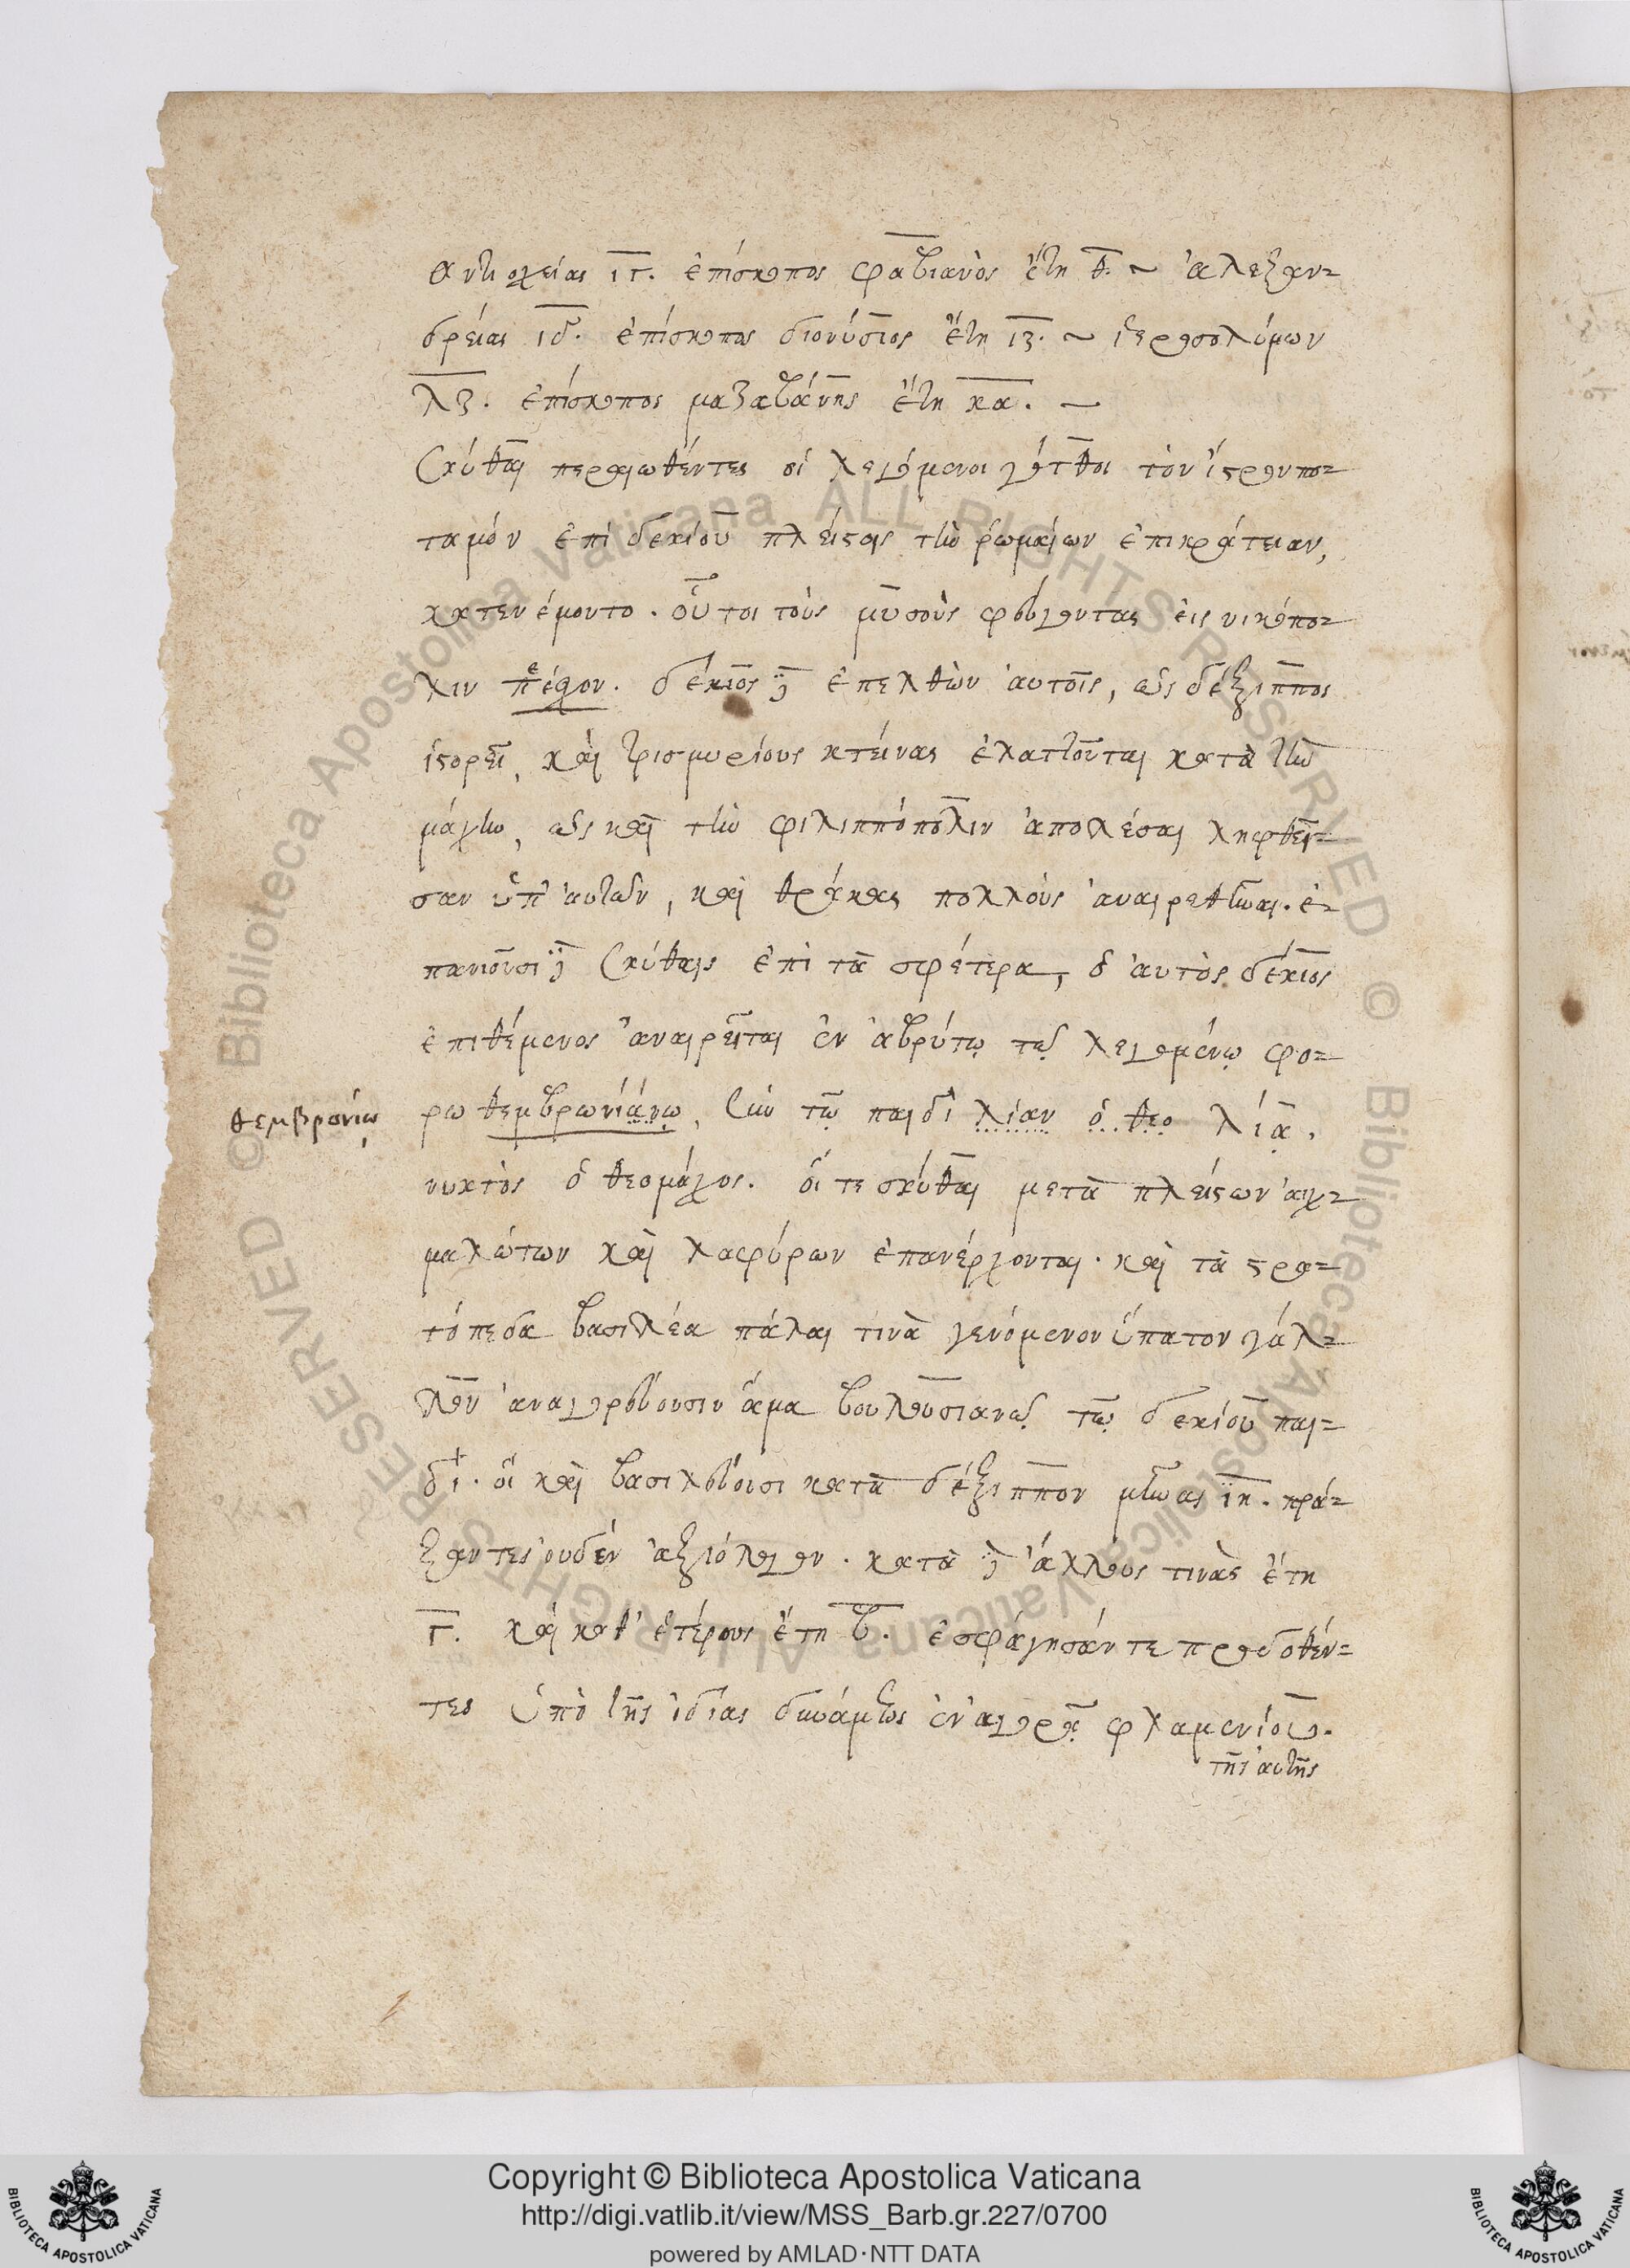 Αντιοχείας ιγ. ἐπίσκοπος φαβιανὸς ἔτη θ. ~ ἀλεξαν=
δρείας ιδ. ἐπίσκοπος διονύσιος ἔτη ιζ. ~ ἱεροσολύμων
λζ. ἐπίσκοπος μαζαβάνης ἔτη κα. ~
Σκύθαι περαιωθέντες οἱ λεγόμενοι γότθοι τὸν ἴστρον πο=
ταμόν ἐπὶ δεκίου πλεῖστοι τὴν ῥωμαίων ἐπικράτειαν,
κατενέμοντο. οὗτοι τοὺς μυσοὺς φεύγοντας εἰς νικόπο=
λιν πεέχον. δέκιος δὲ ἐπελθὼν αὐτοῖς, ὡς δέξιππος
ἱστορεῖ, καὶ τρισμυρίους κτείνας ἐλαττοῦται κατὰ τὴν
μάχην, ὡς καὶ τὴν φιλιππόπολιν ἀπολέσαι ληφθεῖ=
σαν ὑπ' αὐτῶν, καὶ θρᾷκας πολλοὺς ἀναιρεθῆναι. ἐ=
πανιοῦσι δὲ Σκύθαις ἐπὶ τὰ σφέτερα, ὁ αὐτὸς δέκιος
ἐπιθέμενος ἀναιρεῖται ἐν ἀβρύτῳ τῷ λεγομένῳ φο=
θεμβρονίῳ
ρω θεμβρωνιάνῳ, σὺν τῷ παιδὶ λίαν ὁ θεο λίᾳ.
νυκτὸς ὁ θεομάχος. οἵ τε σκύθαι μετὰ πλείστων αἰχ=
μαλώτων καὶ λαφύρων ἐπανέρχονται. καὶ τὰ στρα=
τόπεδα βασιλέα πάλαι τινὰ γενόμενον ὕπατον γάλ=
λον ἀναγορεύουσιν ἅμα βουλουσιανῷ τῷ δεκίου παι=
δί. οἳ καὶ βασιλεύουσι κατὰ δέξιππον μῆνας ιη. πρά=
ξαντες οὐδὲν ἀξιόλογον. κατὰ δὲ ἄλλους τινὰς ἔτη
γ. καὶ καθ' ἑτέρους ἔτη β. ἐσφάγησάν τε προδοθέν=
τες ὑπὸ τῆς ἰδίας δυνάμεως ἐν ἀγορᾷ φλαμενίου.
τῆς αὐτῆς
Copyright © Biblioteca Apostolica Vaticana
http://digi.vatlib.it/view/MSS_Barb.gr.227/0700
powered by AMLAD·NTT DATA